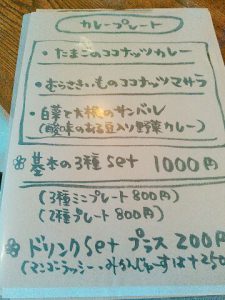 カレープレート
・たまごのココナッツカレー
・むらさきいものココナッツマサラ
・白菜と大根のサンバル
(酸味のある豆入り野菜カレー)
基本の3種set 1000円
(3種ミニプレート 800円)
(2種プレート 800円)
ドリンクset プラス 200円
(マンゴーラッシー・みかんじゅーすは+250